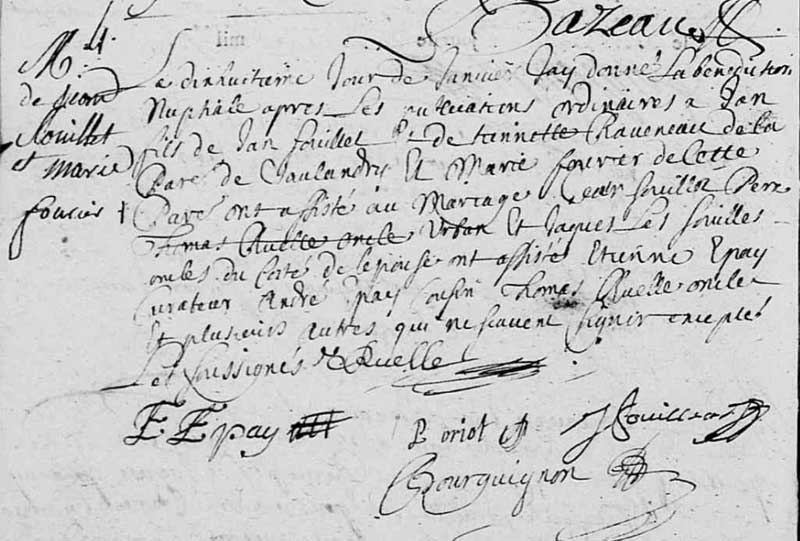 Bazeau
M.
de Jean
Souillet
et marie
fourier
Le dixhuctieme Jour de Janvier Jay donné La benediction
Nuptiale apres Les publications ordinaires a Jan
fils de Jan Souillet Et de Perinnette Raveneau de la
Parr de Et Marie fourier de Cette
Parr ont assisté au Mariage Jean Souillet Pere
Thomas Ruelle oncle Urban Et Jaques Les Souilles
oncles du Costé de lepouse ont assistés Etienne Epay
Curateur André Epay Cousin Thomas Ruelle oncle
Et plusieurs autres qui ne scavent Signir exceptés
Les Soussignés Ruelle
E. Epay
P oriot
J Souillet
Bourguignon